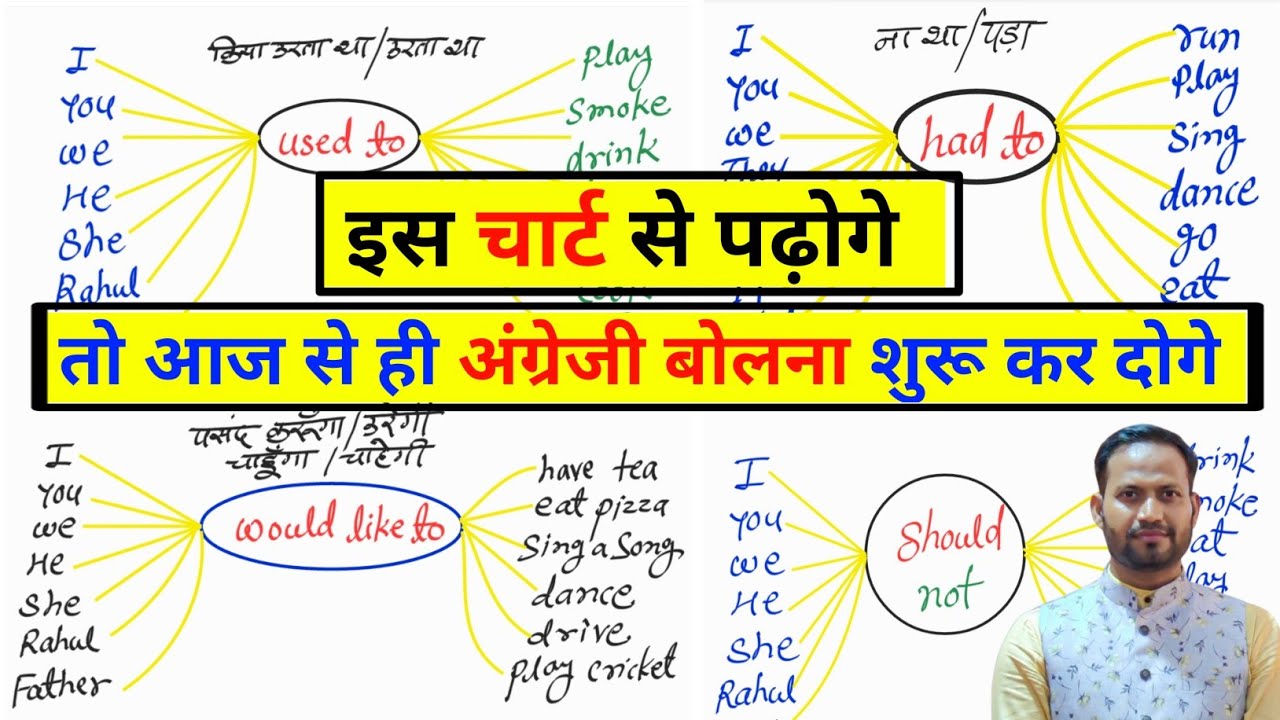 किया करता था/करता था
I
You
we
He
She
Rahul
used to
Play
Smoke
drink
ना था/पड़ा
I
You
we
They
had to
run
Play
Sing
dance
go
eat
इस चार्ट से पढ़ोगे
तो आज से ही अंग्रेजी बोलना शुरू कर दोगे
पसंद करूँगा/करेगी
चाहूँगा/चाहेगी
I
You
we
He
She
Rahul
Father
would like to
have tea
eat pizza
Sing a Song
dance
drive
Play cricket
I
You
we
He
She
Rahul
Should
not